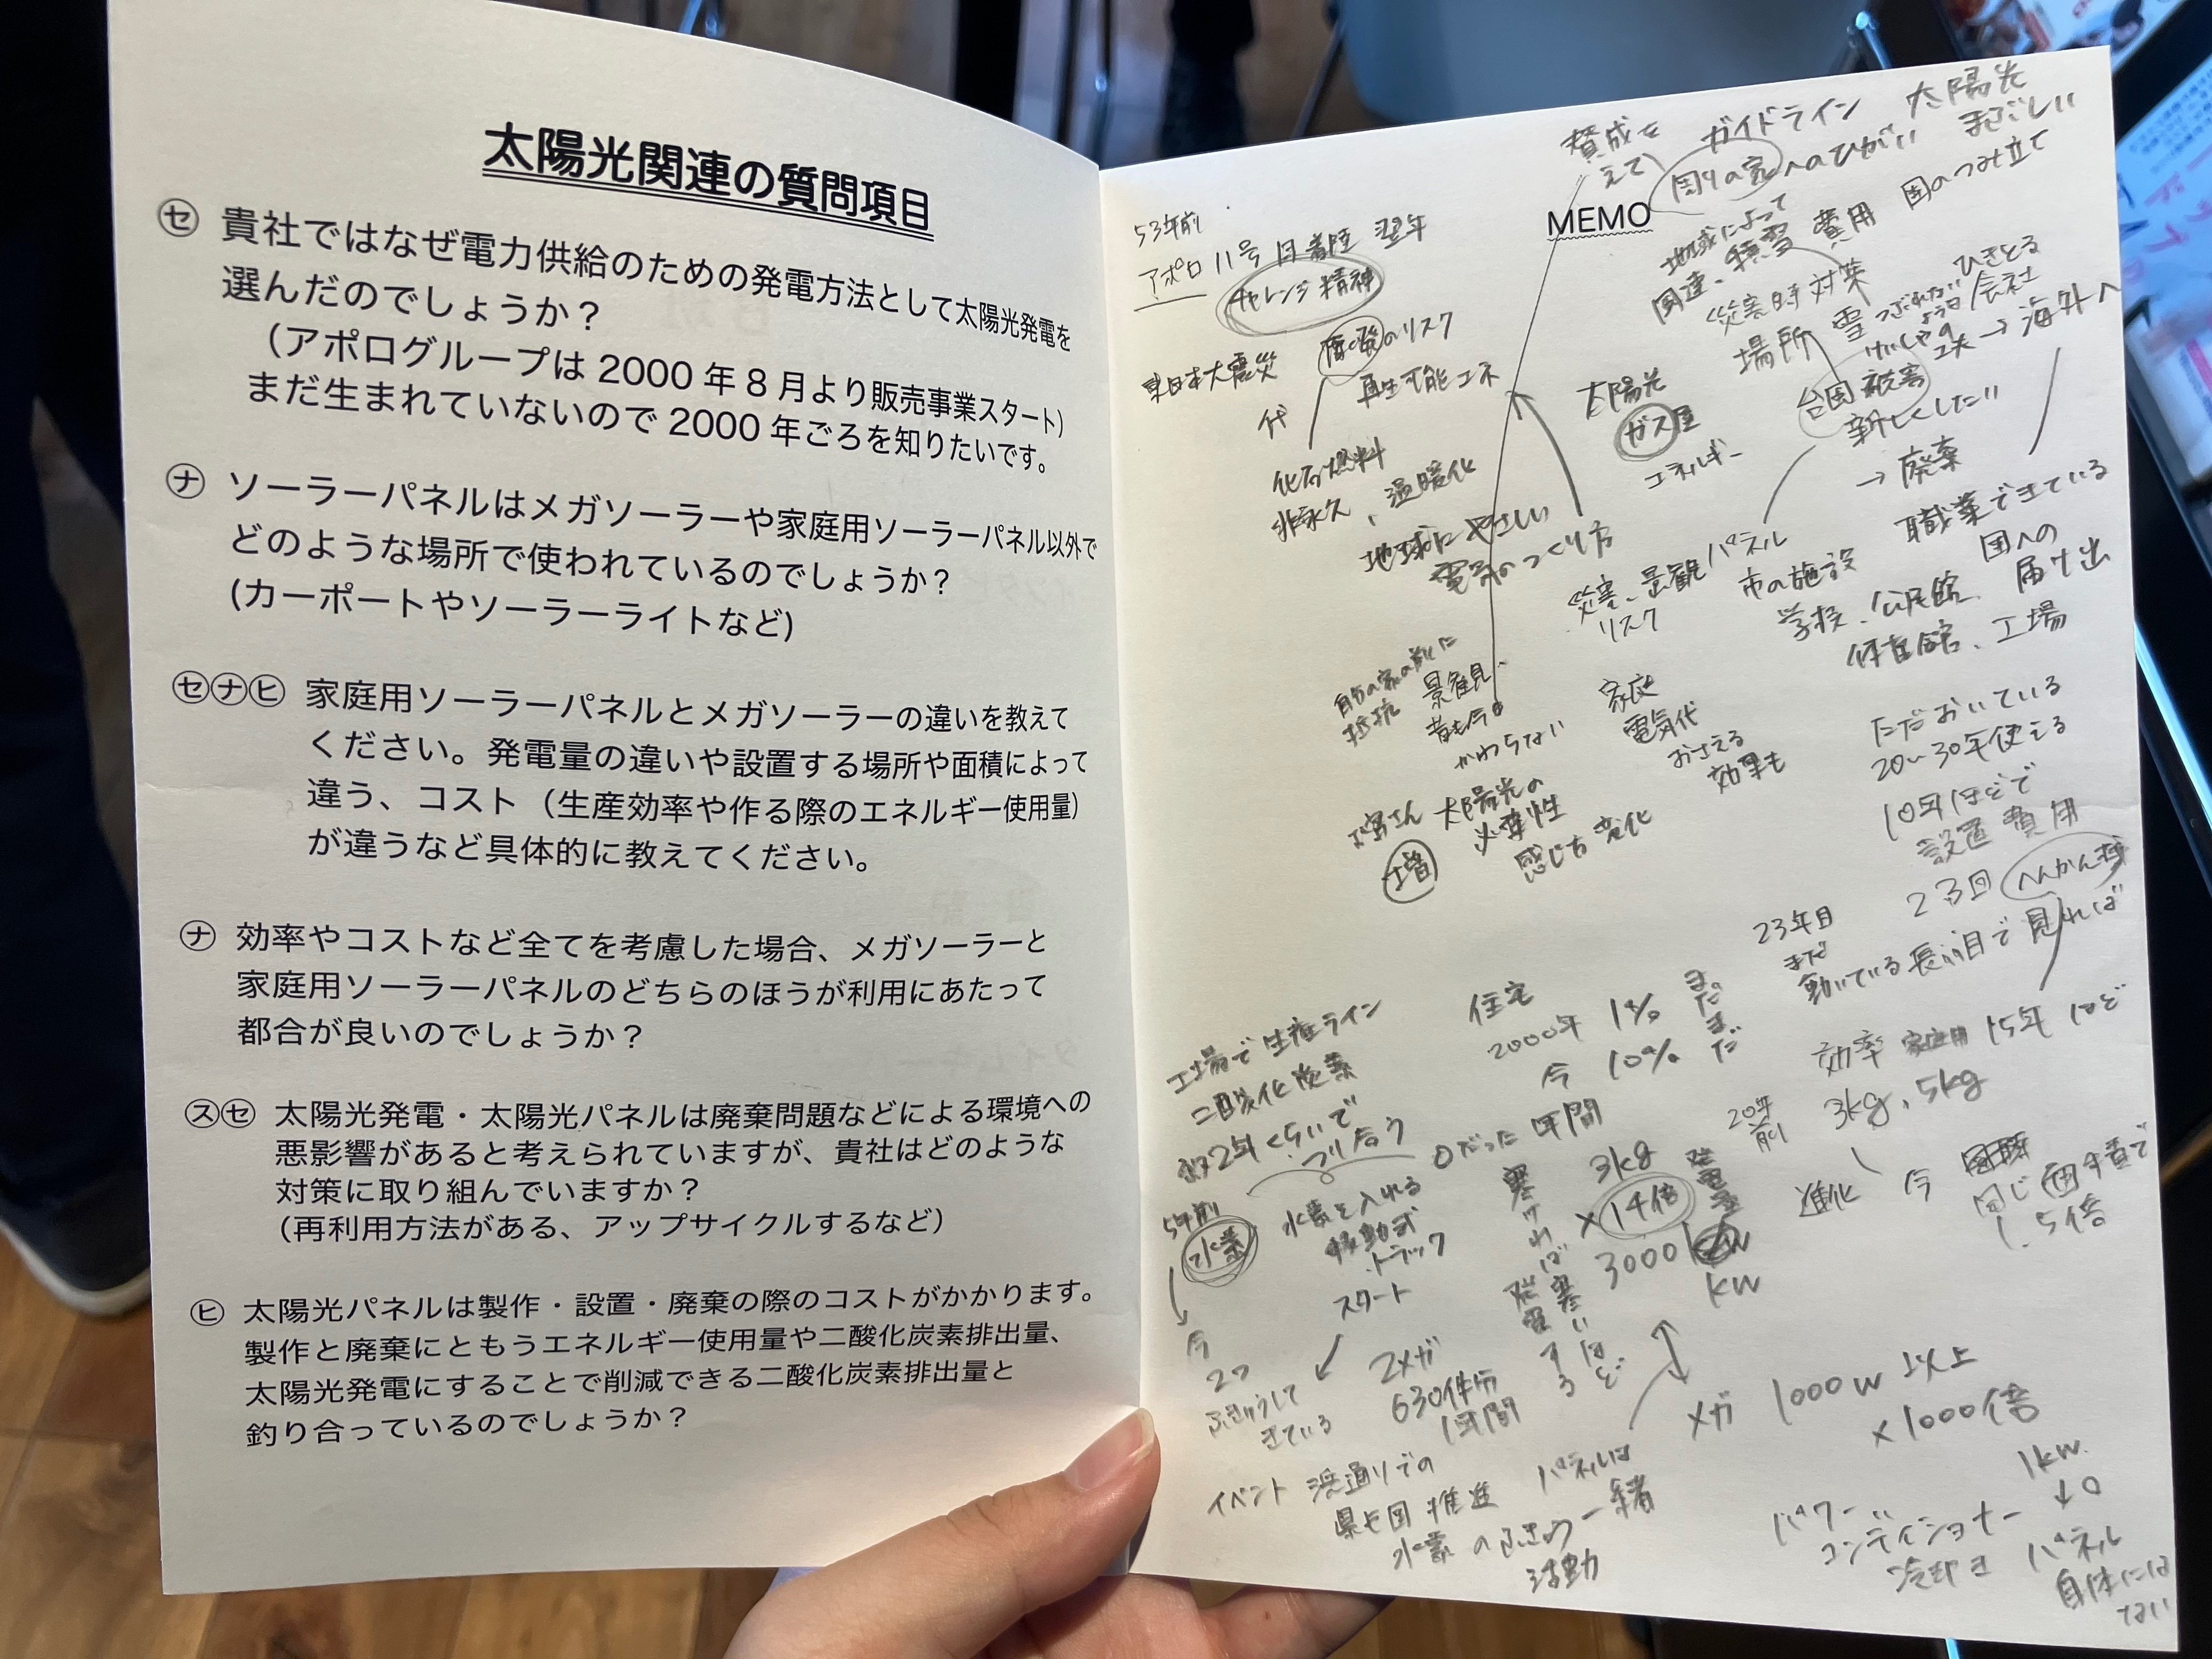 太陽光関連の質問項目
㋝ 貴社ではなぜ電力供給のための発電方法として太陽光発電を
選んだのでしょうか？
（アポログループは 2000 年 8 月より販売事業スタート）
まだ生まれていないので 2000 年ごろを知りたいです。
㋤ ソーラーパネルはメガソーラーや家庭用ソーラーパネル以外で
どのような場所で使われているのでしょうか？
(カーポートやソーラーライトなど)
㋝㋤㋪ 家庭用ソーラーパネルとメガソーラーの違いを教えて
ください。発電量の違いや設置する場所や面積によって
違う、コスト（生産効率や作る際のエネルギー使用量）
が違うなど具体的に教えてください。
㋤ 効率やコストなど全てを考慮した場合、メガソーラーと
家庭用ソーラーパネルのどちらのほうが利用にあたって
都合が良いのでしょうか？
㋜㋝ 太陽光発電・太陽光パネルは廃棄問題などによる環境への
悪影響があると考えられていますが、貴社はどのような
対策に取り組んでいますか？
（再利用方法がある、アップサイクルするなど）
㋪ 太陽光パネルは製作・設置・廃棄の際のコストがかかります。
製作と廃棄にともうエネルギー使用量や二酸化炭素排出量、
太陽光発電にすることで削減できる二酸化炭素排出量と
釣り合っているのでしょうか？
MEMO
53年前
アポロ 11号 月着陸 翌年
チャレンジ精神
東日本大震災 原発のリスク
再生可能エネ
代
化石燃料
非永久、温暖化
地球にやさしい
電気のつくり方
賛成を
えて
ガイドライン 太陽光
周りの家へのひがい まぶしい
地域によって 費用 国のつみ立て
積雪
災害時 対策
場所 雪
つぶれない
ひきとる
会社
→ 海外へ
太陽光
ガス屋
エネルギー
台風被害
新しくしたい
→ 廃棄
職業できている
国への
届け出
災害、景観 パネル
リスク
市の施設
学校、公民館、
体育館、工場
自分の家の前に
抵抗 景観
昔も今も
かわらない
家庭
電気代
おさえる
効果も
お客さん 太陽光の
必要性
増
感じ方 変化
ただおいている
20~30年使える
10年ほどで
設置費用
23年目
まだ
動いている 長い目で見れば
工場で生産ライン
二酸化炭素
約2年くらいで
つり合う
住宅
2000年 1%
今 10%
まだまだ
効率 家庭用 15年ほど
3kg、5kg
20年
前
進化 今
同じ面積で
1.5倍
0だった 年間
3kg
×14倍
3000
kw
発電量
寒ければ寒いほど
発電する
5年前
水素
水素を入れる
移動式
トラック
スタート
今
2つ
ふきゅうして
きている
2メガ
630件分
1年間
メガ 1000w 以上
×1000倍
1kw
↓0
イベント 浜通りでの
県と国 推進
水素のふきゅう
パネルは
一緒
活動
パワー
コンディショナー
冷却き パネル
自体には
ない